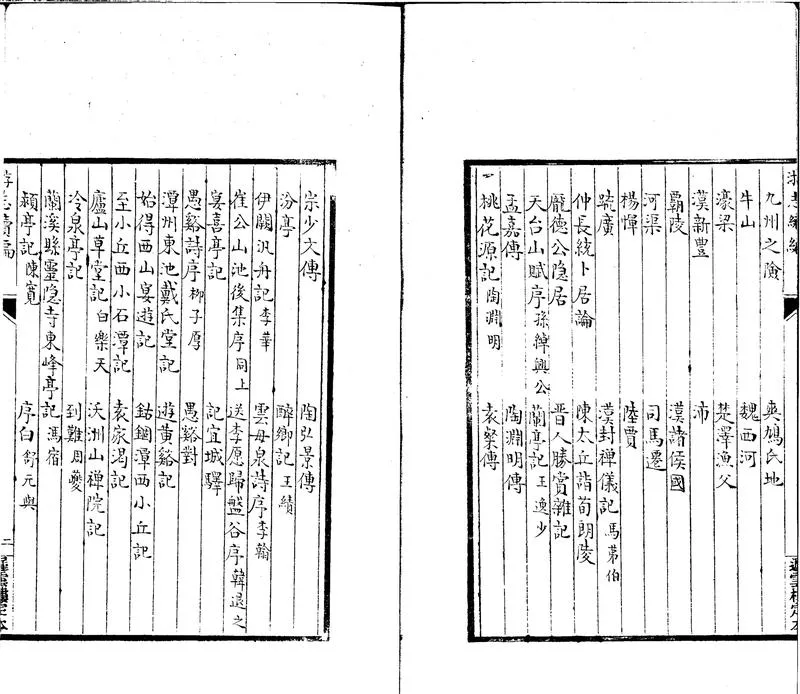 九州之險 爽鳩氏地
牛山 魏西河
濠梁 楚澤漁父
漢新豐 沛
霸陵 漢諸侯國
河渠 司馬遷
楊惲 陸賈
疏廣 漢封禪儀記 馬第伯
仲長統卜居論 陳太丘詣荀朗陵
龐德公隐居 晉人勝賞雜記
天台山賦序 孫綽興公 蘭亭記 王逸少
孟嘉傳 陶淵明傳
桃花源記 陶淵明 袁粲傳
宗少文傳 陶弘景傳
汾亭 醉鄉記 王績
伊闕汎舟記 李華 雲母泉詩序 李翰
崔公山池後集序 同上 送李愿歸盤谷序 韓退之
宴喜亭記 記宜城驛
愚谿詩序 柳子厚 愚谿對
潭州東池戴氏堂記 遊黃谿記
始得西山宴遊記 鈷鉧潭西小丘記
至小丘西小石潭記 袁家渴記
廬山草堂記 白樂天 沃洲山禪院記
冷泉亭記 到難 周夔
蘭溪縣靈隐寺東峰亭記 馮宿
潁亭記 陳寬 序白 舒元輿
游志續編 二